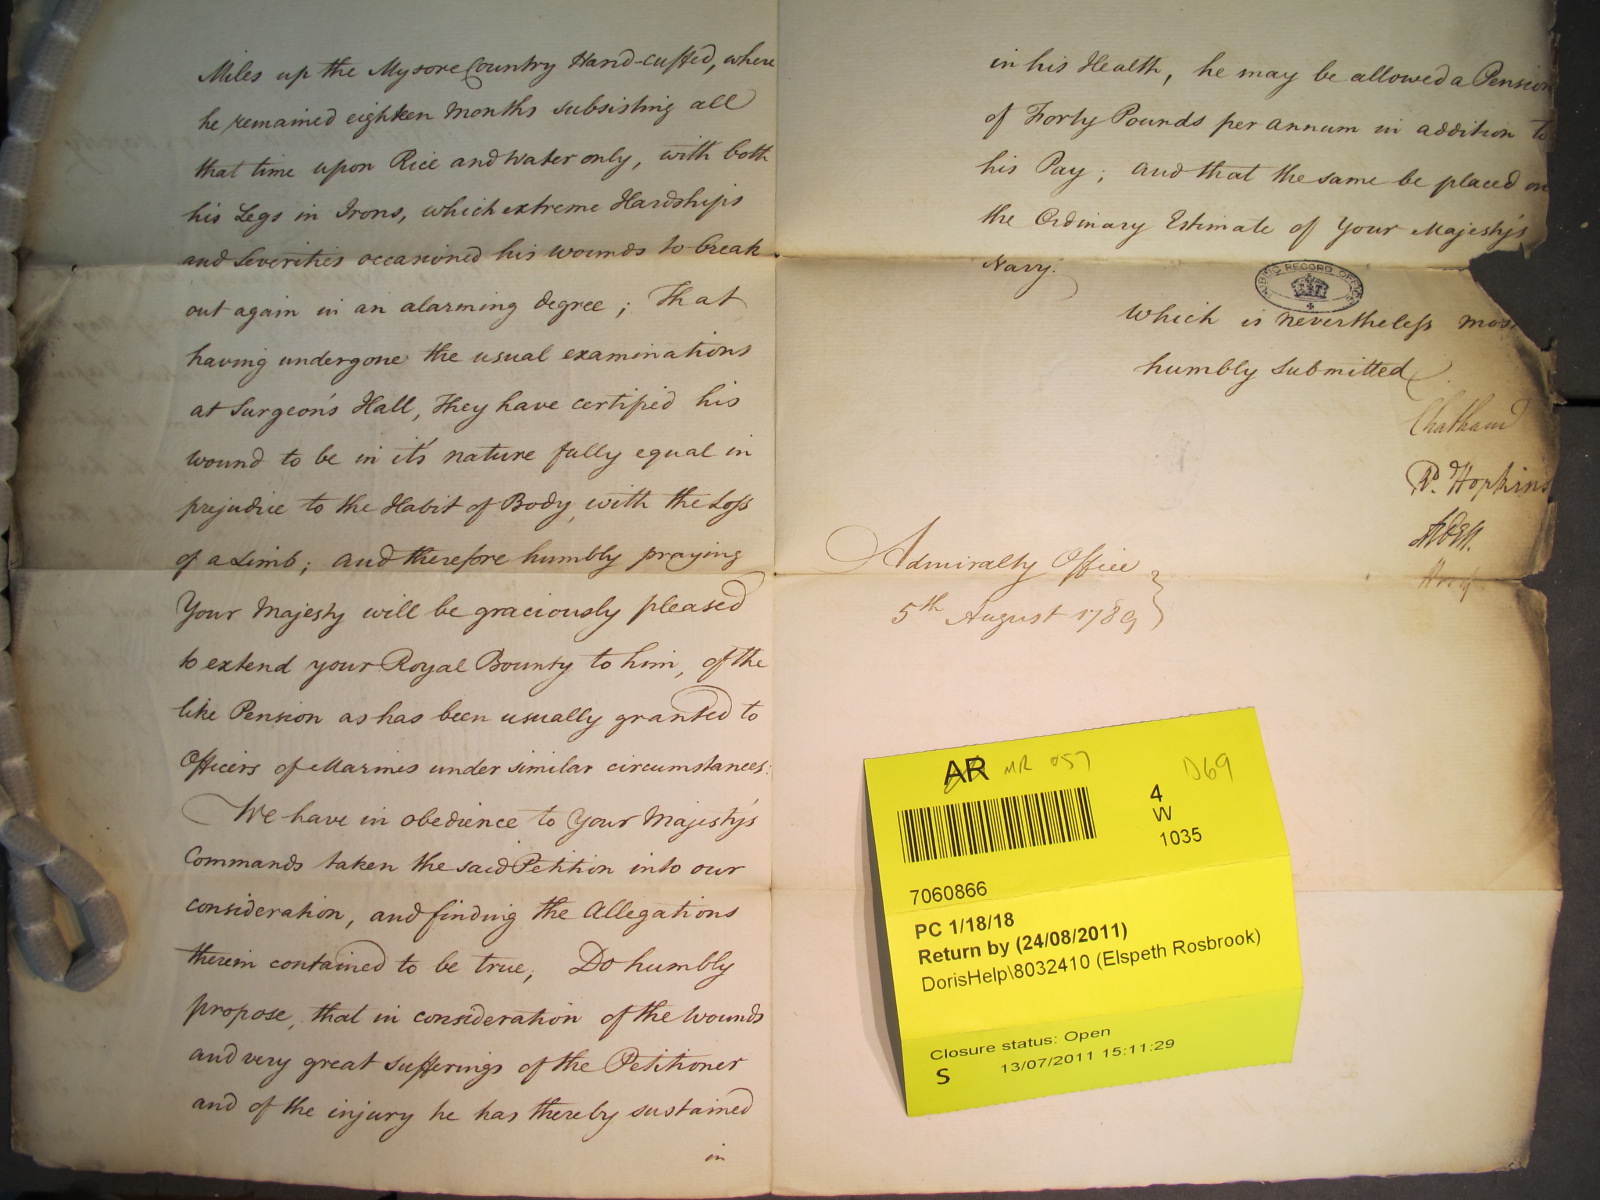 Miles up the Mysore Country Hand-cuffed, where
he remained eighteen Months subsisting all
that time upon Rice and Water only, with both
his Legs in Irons, which extreme Hardships
and Severities occasioned his wounds to break
out again in an alarming degree; That
having undergone the usual examinations
at Surgeon's Hall, They have certified his
wound to be in it's nature fully equal in
prejudice to the Habit of Body, with the Loss
of a Limb; and therefore humbly praying
Your Majesty will be graciously pleased
to extend your Royal Bounty to him, of the
like Pension as has been usually granted to
Officers of Marines under similar circumstances:
We have in obedience to Your Majesty's
Commands taken the said Petition into our
consideration, and finding the Allegations
therein contained to be true; Do humbly
propose, that in consideration of the wounds
and very great sufferings of the Petitioner
and of the injury he has thereby sustained
in
in his Health, he may be allowed a Pension
of Forty Pounds per annum in addition to
his Pay; and that the same be placed on
the Ordinary Estimate of Your Majesty's
Navy.
PUBLIC RECORD OFFICE
Which is nevertheless most
humbly submitted
Chatham
Rd. Hopkins
Hood
Admiralty Office
5th August 1789
AR MR 057 D69
4
W
1035
7060866
PC 1/18/18
Return by (24/08/2011)
DorisHelp\8032410 (Elspeth Rosbrook)
Closure status: Open
S 13/07/2011 15:11:29